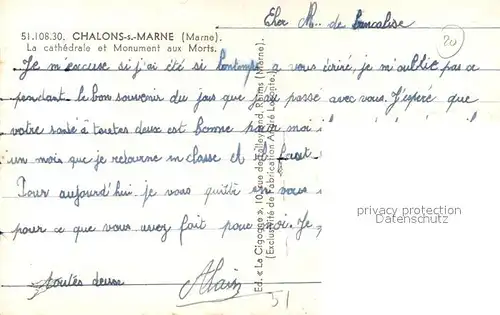 Cher M.. de
20
51.108.30. CHALONS-s.-MARNE (Marne).
La cathédrale et Monument aux Morts.
Je m'excuse si j'ai été si lontemps a vous écriré, je m'oublie pas ce
pendant le bon souvenir du jour que j'ai passé avec vous. J'espéré que
votre santé a toutes deux est bonne pour moi
un mois que je retourne en classe et il faut
Pour aujourd'hui je vous quitte en vous
pour ce que vous avez fait pour moi. Je
toutes deux
Alain
51
Ed. « La Cigogne », 10, rue de Talleyrand, Reims (Marne).
(Exclusivité de Fabrication André Leconte).
privacy protection
Datenschutz